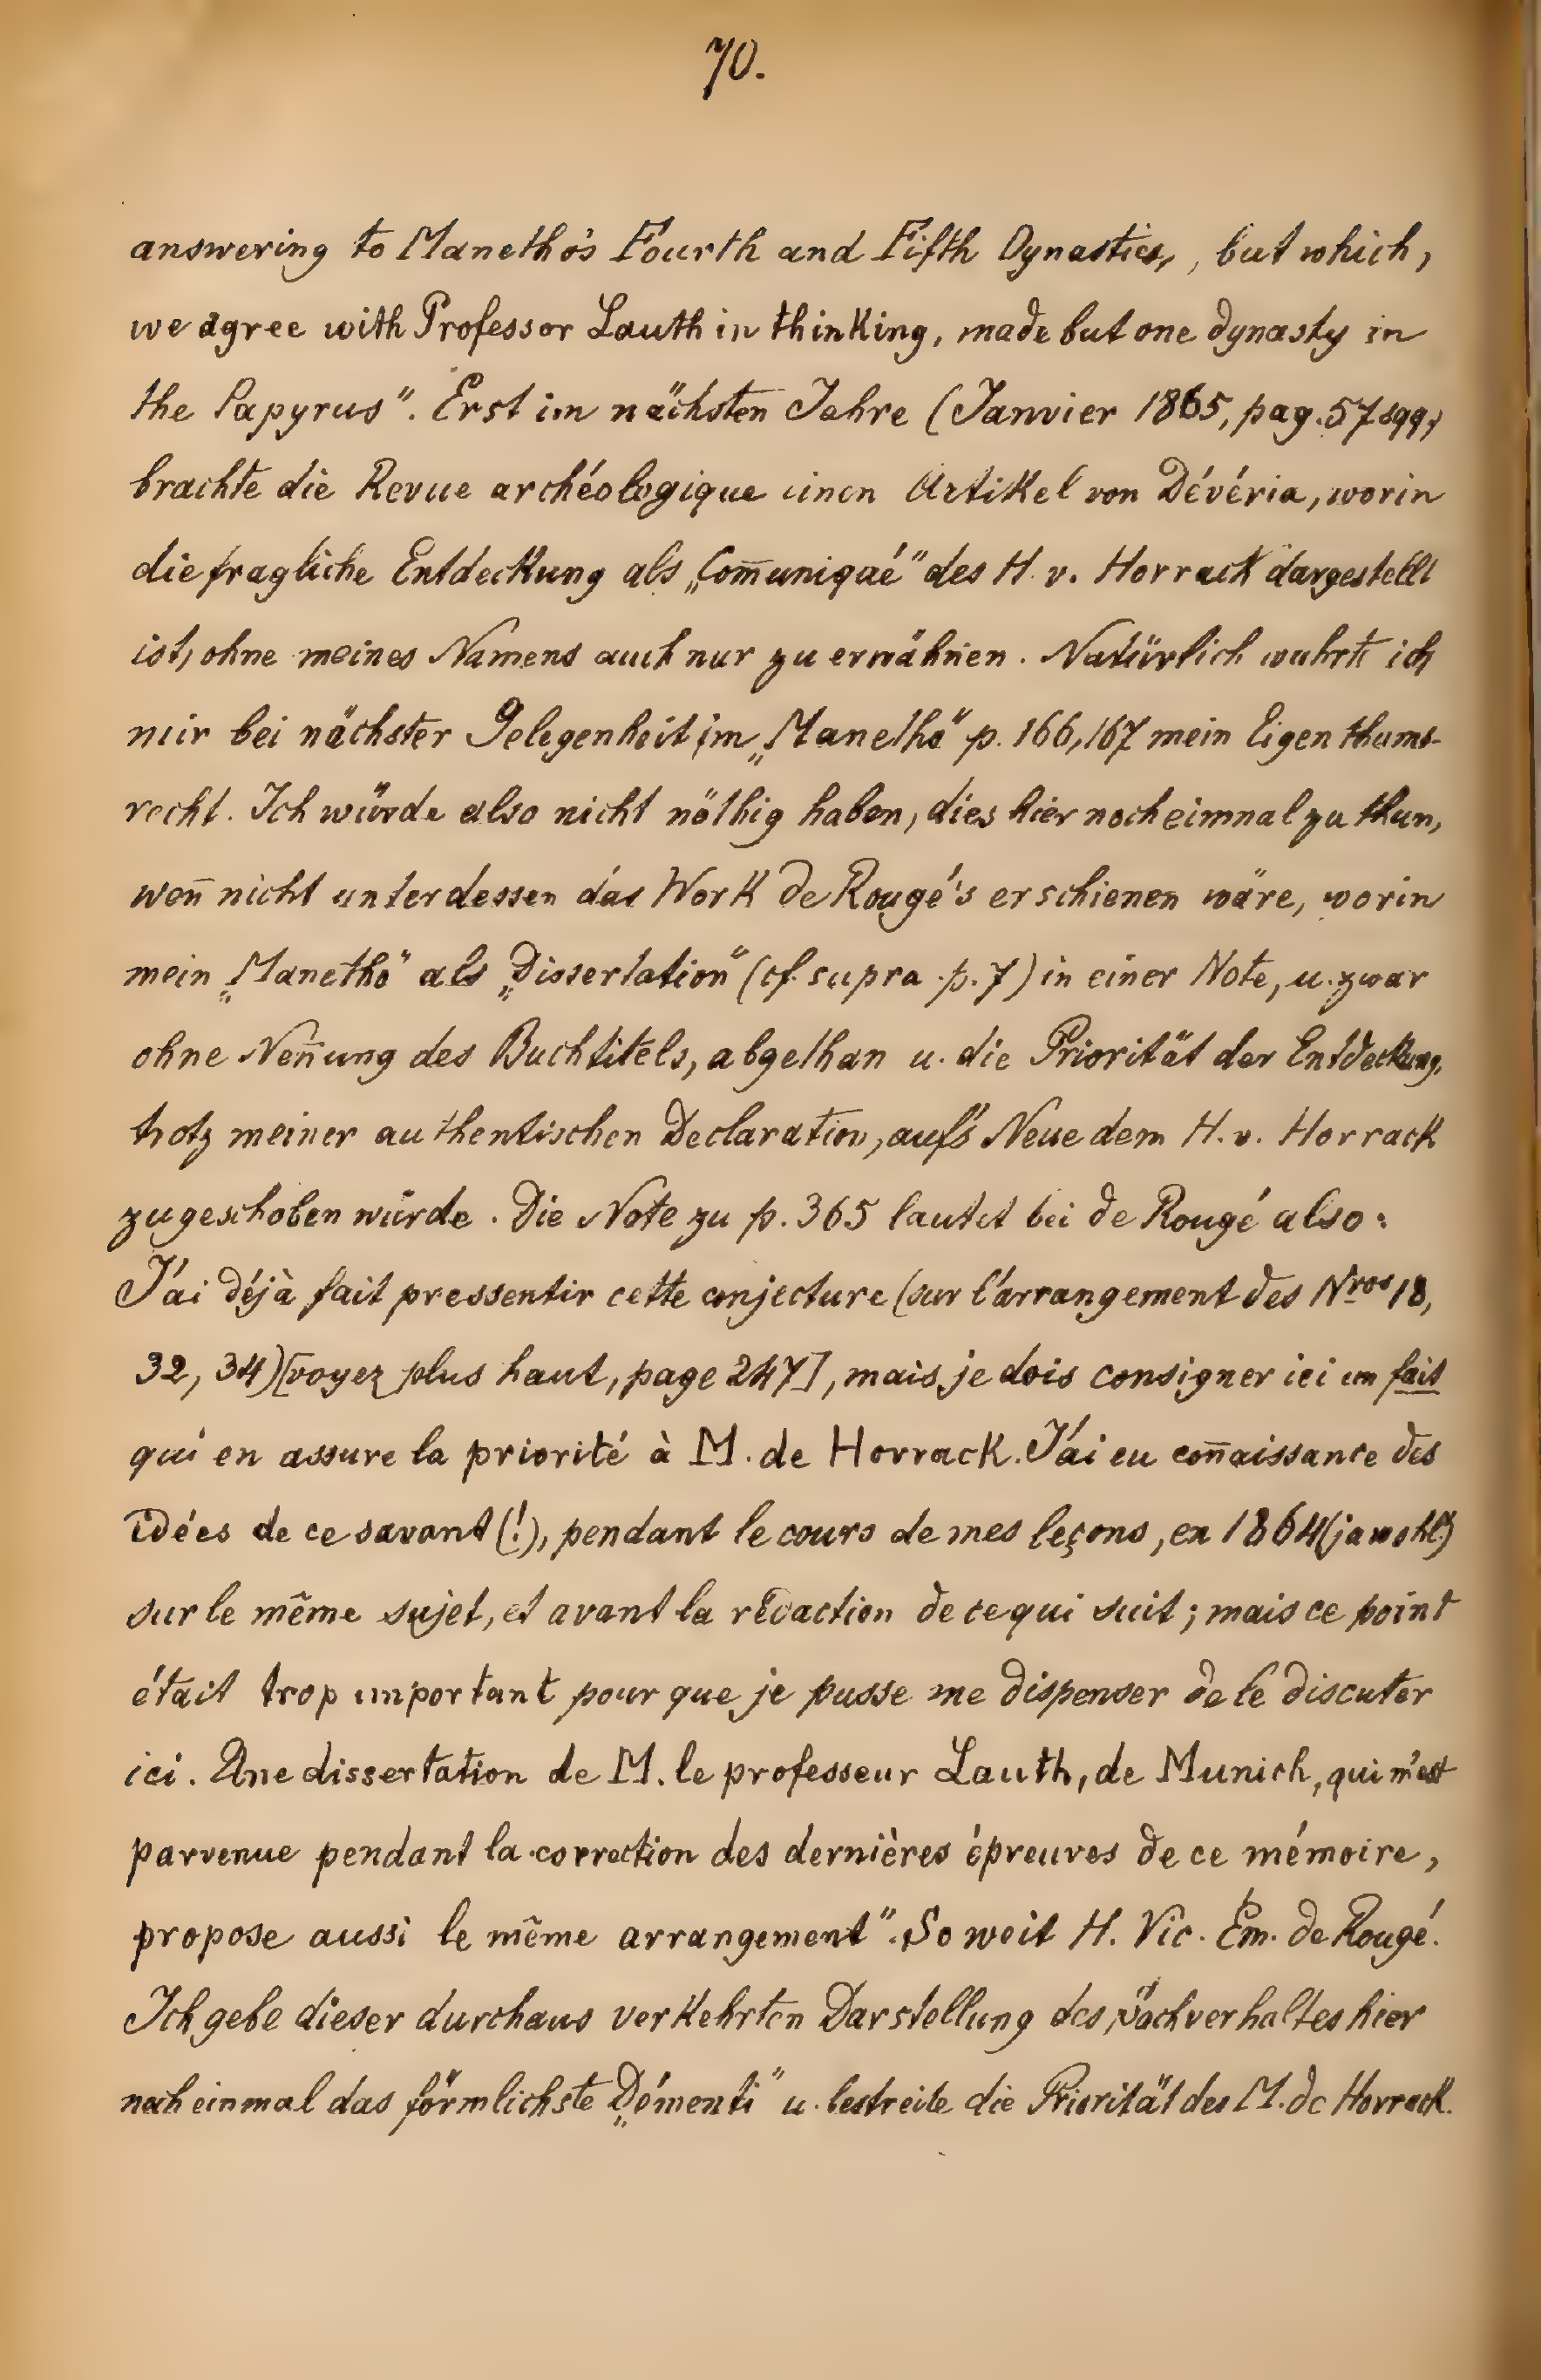 70.
answering to Manetho's Fourth and Fifth Dynasties, , but which,
we agree with Professor Lauth in thinking, made but one dynasty in
the Papyrus". Erst im nächsten Jahre (Janvier 1865, pag. 57 sqq.)
brachte die Revue archéologique einen Artikel von Dévéria, worin
die fragliche Entdeckung als „Com̄uniqué" des H. v. Horrack dargestellt
ist, ohne meines Namens auch nur zu erwähnen. Natürlich wahrte ich
mir bei nächster Gelegenheit im „Manetho" p. 166,167 mein Eigenthums-
recht. Ich würde also nicht nöthig haben, dies hier noch eimnal zu thun,
wen̄ nicht unterdessen das Werk de Rougé's erschienen wäre, worin
mein „Manetho" als „Dissertation" (cf. supra p. 7) in einer Note, u. zwar
ohne Nen̄ung des Buchtitels, abgethan u. die Priorität der Entdeckung,
trotz meiner authentischen Declaration, auf's Neue dem H. v. Horrack
zugeschoben würde. Die Note zu p. 365 lautet bei de Rougé also:
J'ai déjà fait pressentir cette conjecture (sur l'arrangement des Nros 18,
32, 34) [voyez plus haut, page 247], mais je dois consigner ici un fait
qui en assure la priorité à M. de Horrack. J'ai eu con̄aissance des
idées de ce savant (!), pendant le cours de mes leçons, en 1864 (jawohl!)
sur le même sujet, et avant la rédaction de ce qui suit; mais ce point
était trop important pour que je pusse me dispenser de le discuter
ici. Une dissertation de M. le professeur Lauth, de Munich, qui m'est
parvenue pendant la correction des dernières épreuves de ce mémoire,
propose aussi le même arrangement". So weit H. Vic. Em. de Rougé.
Ich gebe dieser durchaus verkehrten Darstellung des Sachverhaltes hier
noch einmal das förmlichste „Démenti" u. bestreite die Priorität des M. de Horrack.